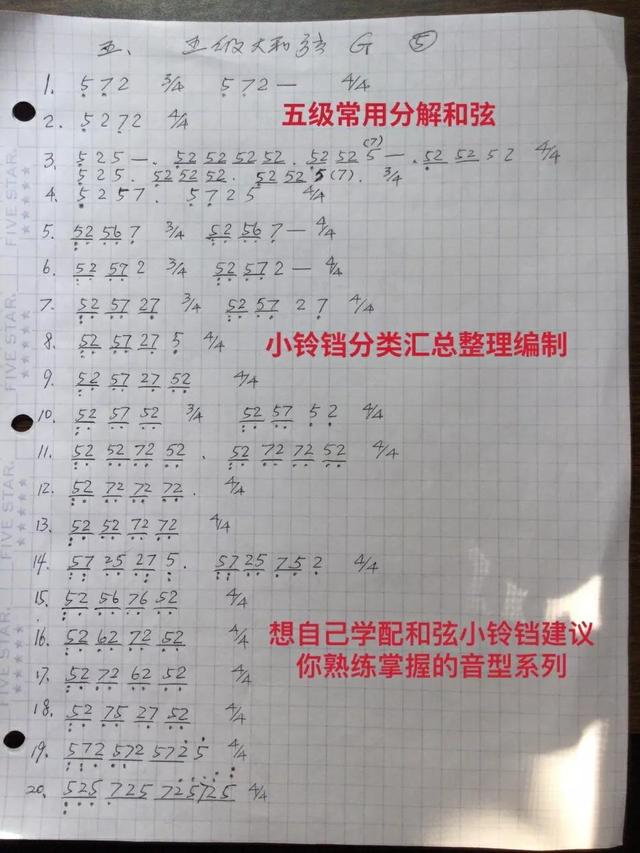 五、 五级大和弦 G ⑤
1. 572 3/4 572— 4/4
五级常用分解和弦
2. 5272 4/4
3. 525—. 52 52 52 52. 52 52 5(7)—. 52 52 5 2 4/4
525. 52 52 52. 52 52 5(7). 3/4
4. 5257. 5725 4/4
5. 52 56 7 3/4 52 56 7— 4/4
6. 52 57 2 3/4 52 57 2— 4/4
7. 52 57 27 3/4 52 57 2 7 4/4
8. 52 57 27 5 4/4
小铃铛分类汇总整理编制
9. 52 57 27 52 4/4
10. 52 57 52 3/4 52 57 5 2 4/4
11. 52 52 72 52. 52 72 72 52 4/4
12. 52 72 72 72. 4/4
13. 52 52 72 72 4/4
14. 57 25 27 5. 57 25 75 2 4/4
15. 52 56 76 52 4/4
16. 52 62 72 52 4/4
想自己学配和弦小铃铛建议
你熟练掌握的音型系列
17. 52 72 62 52 4/4
18. 52 75 27 52 4/4
19. 572 572 572 5 4/4
20. 525 725 725 725 4/4
FIVE STAR.
FIVE STAR.
FIVE STAR.
FIVE STAR.